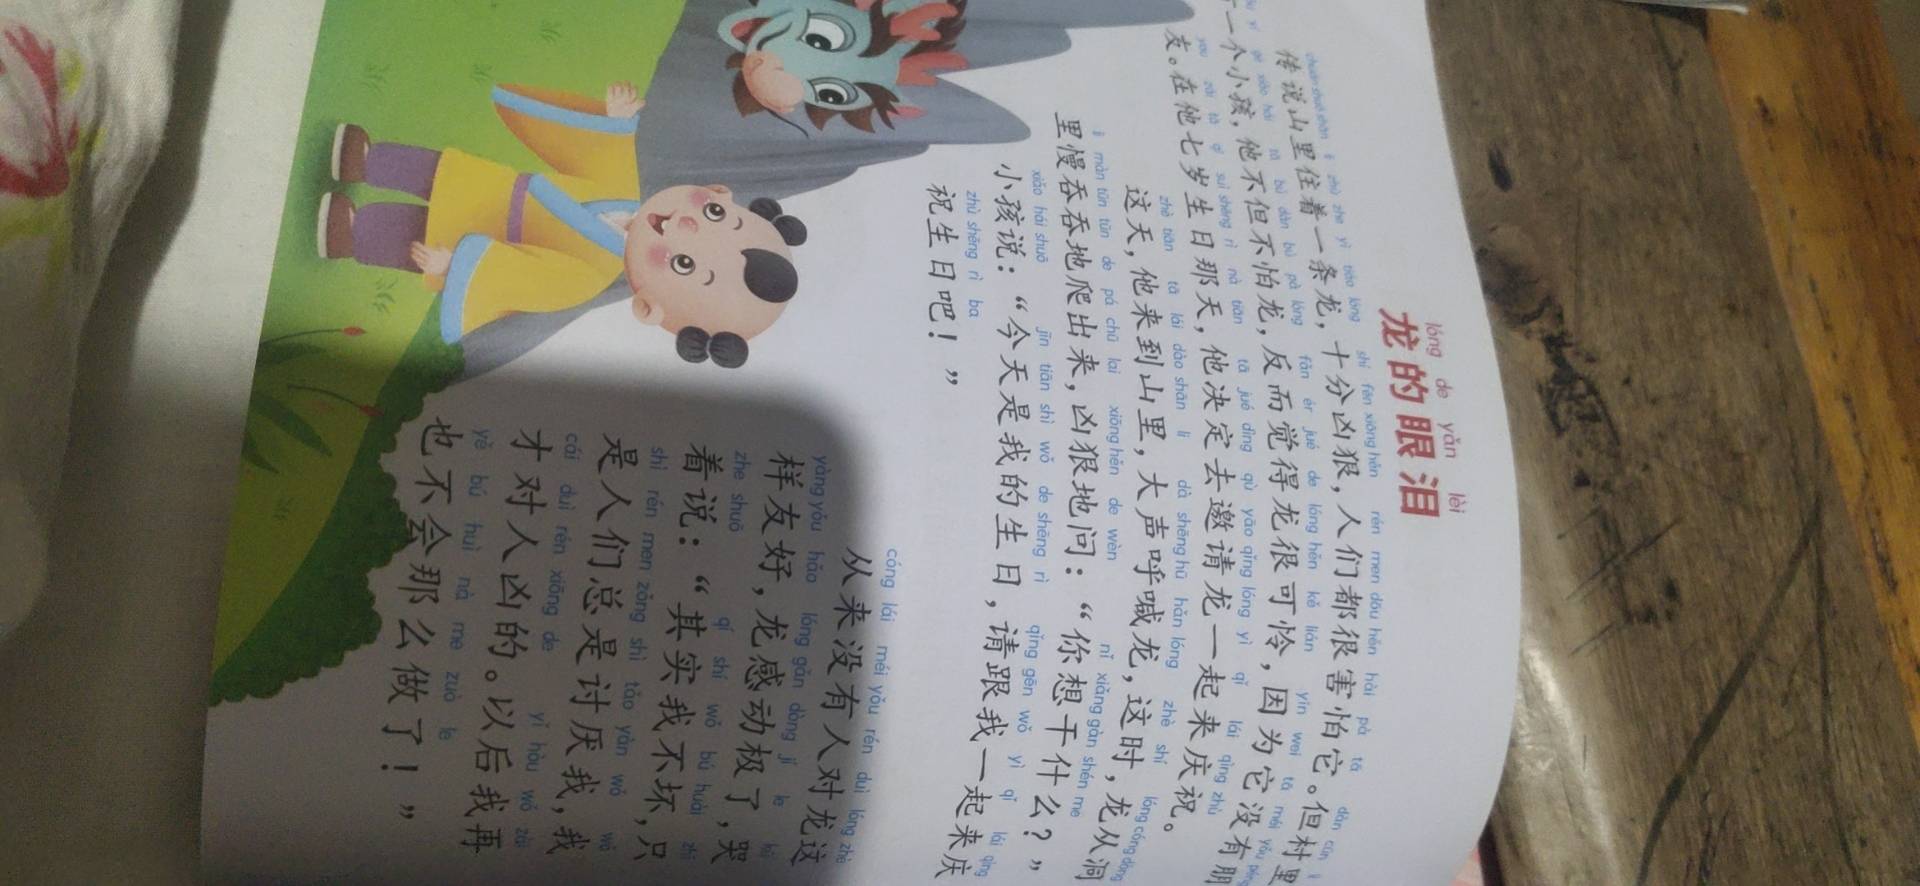 lóng de yǎn lèi
龙的眼泪
chuán shuō shān lǐ zhù zhe yì tiáo lóng shí fēn xiōng hěn rén men dōu hěn hài pà tā dàn cūn lǐ
传说山里住着一条龙，十分凶狠，人们都很害怕它。但村里
yǒu yí gè xiǎo hái tā bú dàn bú pà lóng fǎn ér jué de lóng hěn kě lián yīn wèi tā méi yǒu péng
有一个小孩，他不但不怕龙，反而觉得龙很可怜，因为它没有朋
you zài tā qī suì shēng rì nà tiān tā jué dìng qù yāo qǐng lóng yì qǐ lái qìng zhù
友。在他七岁生日那天，他决定去邀请龙一起来庆祝。
zhè tiān tā lái dào shān lǐ dà shēng hū hǎn lóng zhè shí lóng cóng dòng
这天，他来到山里，大声呼喊龙，这时，龙从洞
lǐ màn tūn tūn de pá chū lai xiōng hěn de wèn nǐ xiǎng gàn shén me
里慢吞吞地爬出来，凶狠地问：“你想干什么？”
xiǎo hái shuō jīn tiān shì wǒ de shēng rì qǐng gēn wǒ yì qǐ lái qìng
小孩说：“今天是我的生日，请跟我一起来庆
zhù shēng rì ba
祝生日吧！”
cóng lái méi yǒu rén duì lóng zhè
从来没有人对龙这
yàng yǒu hǎo lóng gǎn dòng jí le kū
样友好，龙感动极了，哭
zhe shuō qí shí wǒ bú huài zhǐ
着说：“其实我不坏，只
shì rén men zǒng shì tǎo yàn wǒ wǒ
是人们总是讨厌我，我
cái duì rén xiōng de yǐ hòu wǒ zài
才对人凶的。以后我再
yě bú huì nà me zuò le
也不会那么做了！”